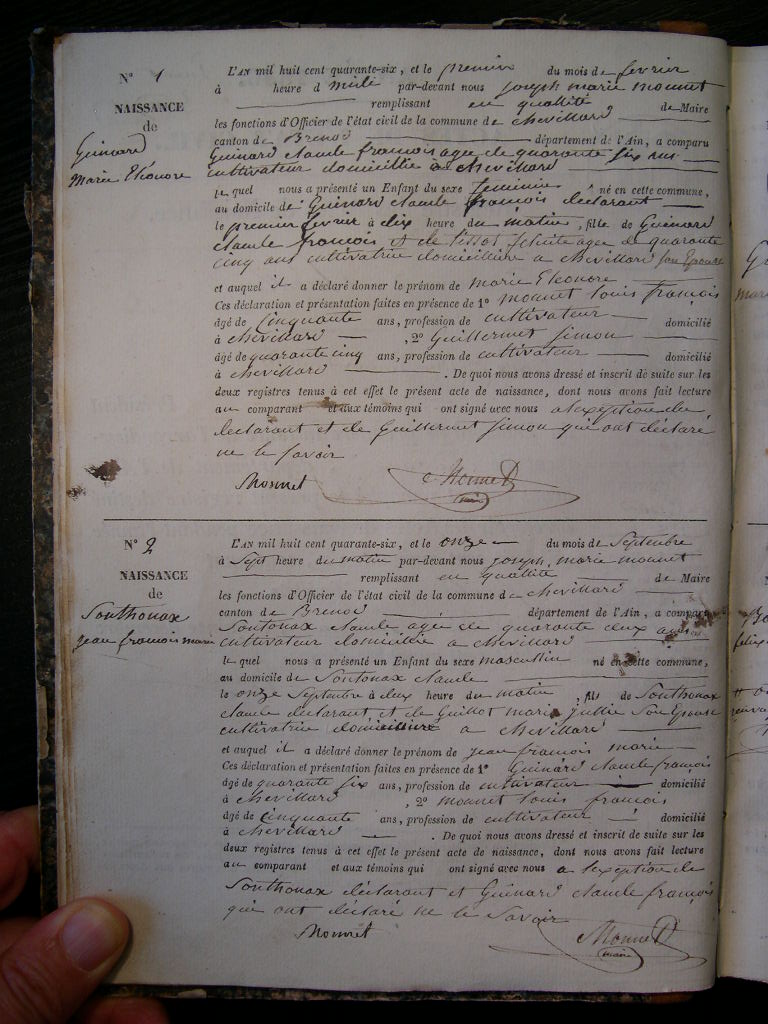 N° 1
NAISSANCE
de
Guinard
Marie Eléonore
L'AN mil huit cent quarante-six, et le premier du mois de fevrier
à heure d midi par-devant nous joseph marie monnet
remplissant en quallité de Maire
les fonctions d'Officier de l'état civil de la commune de chevillard
canton de Brenod département de l'Ain, a comparu
Guinard claude francois agée de quarante six ans
cultivateur domicillié a chevillard
le quel nous a présenté un Enfant du sexe feminin né en cette commune,
au domicile de Guinard claude françois declarant
le premier fevrier à dix heure du matin, fille de Guinard
claude francois et de tissot felicite agee de quarante
cinq ans cultivatrice domicilliée a chevillard son Epouse
et auquel il a déclaré donner le prénom de marie Eleonore
Ces déclaration et présentation faites en présence de 1° monnet louis françois
âgé de Cinquante ans, profession de cultivateur domicilié
à chevillard , 2° Guillermet Simon
âgé de quarante cinq ans, profession de cultivateur domicilié
à chevillard . De quoi nous avons dressé et inscrit de suite sur les
deux registres tenus à cet effet le présent acte de naissance, dont nous avons fait lecture
au comparant et aux témoins qui ont signé avec nous a lexception du
declarant et de Guillermet Simon qui ont déclaré
ne le savoir
Monnet
Monnet
maire
N° 2
NAISSANCE
de
Southonax
jean francois marie
L'AN mil huit cent quarante-six, et le onze du mois de Septembre
à Sept heure du matin par-devant nous joseph marie monnet
remplissant en quallité de Maire
les fonctions d'Officier de l'état civil de la commune de chevillard
canton de Brenod département de l'Ain, a comparu
Soutonax claude agée de quarante deux ans
cultivateur domicillié a chevillard
le quel nous a présenté un Enfant du sexe masculin né en cette commune,
au domicile de Soutonax claude
le onze Septembre à deux heure du matin, fils de Southonax
claude declarant et de Guillot marie jullie Son Epouse
cultivatrice domicilliée a chevillard
et auquel il a déclaré donner le prénom de jean francois marie
Ces déclaration et présentation faites en présence de 1° Guinard claude francois
âgé de quarante six ans, profession de cultivateur domicilié
à chevillard , 2° monnet louis francois
âgé de Cinquante ans, profession de cultivateur domicilié
à chevillard . De quoi nous avons dressé et inscrit de suite sur les
deux registres tenus à cet effet le présent acte de naissance, dont nous avons fait lecture
au comparant et aux témoins qui ont signé avec nous a l'exception de
Southonax déclarant et Guinard claude françois
qui ont déclaré ne le Savoir
Monnet
Monnet
maire